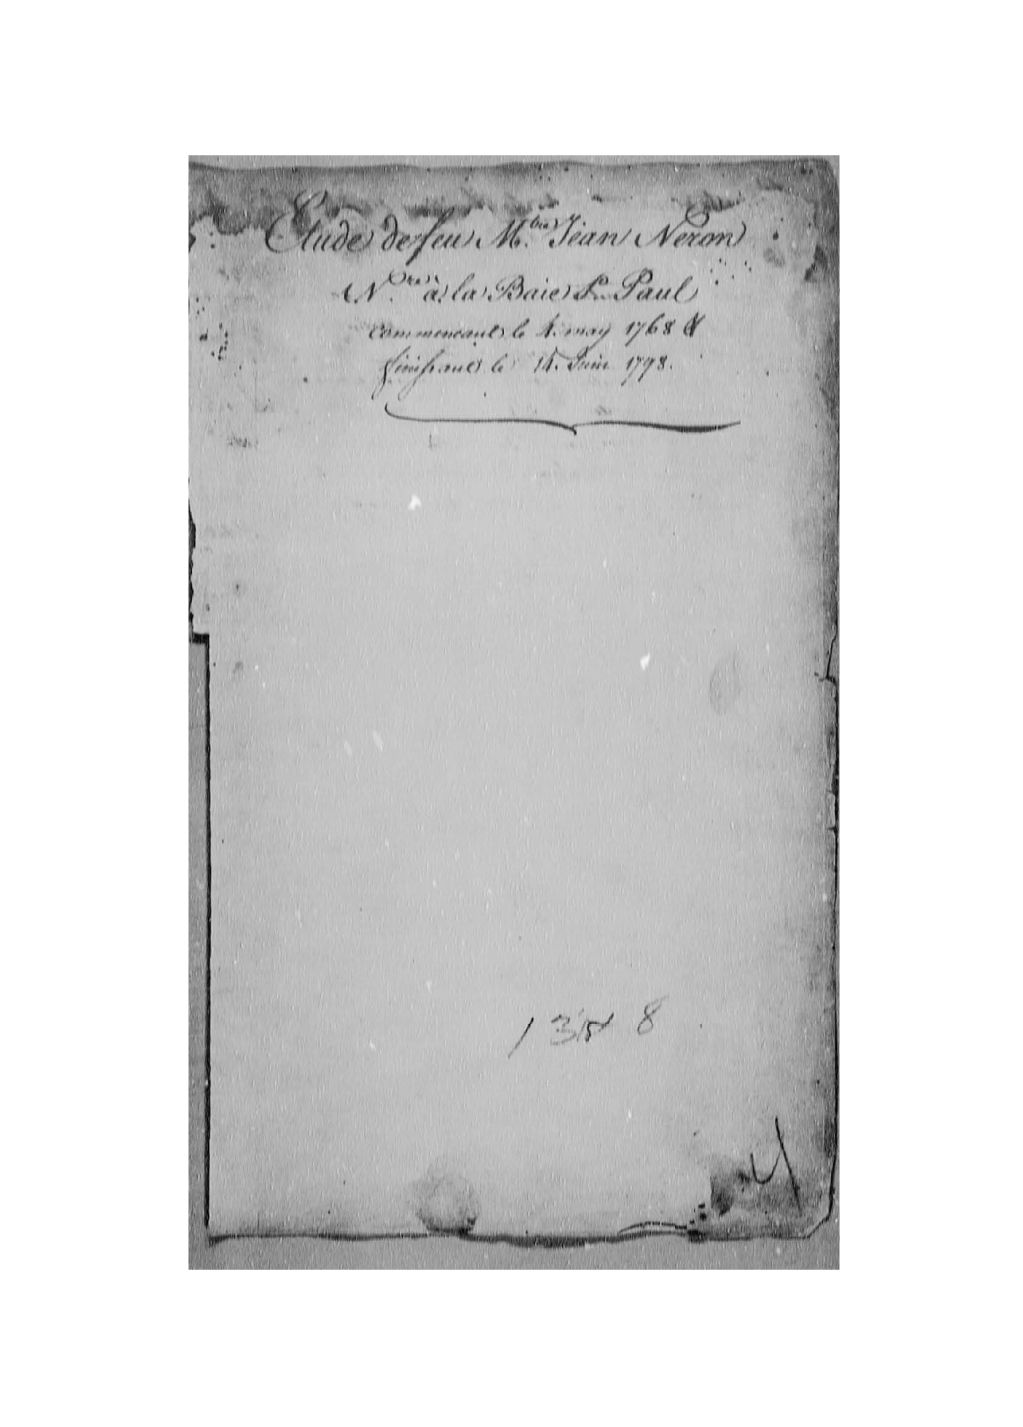 Etude de feu M.tre Jean Neron
N.re à la Baie St Paul
commencant le 4. may 1768 &
finissant le 14. Juin 1798.
8
4